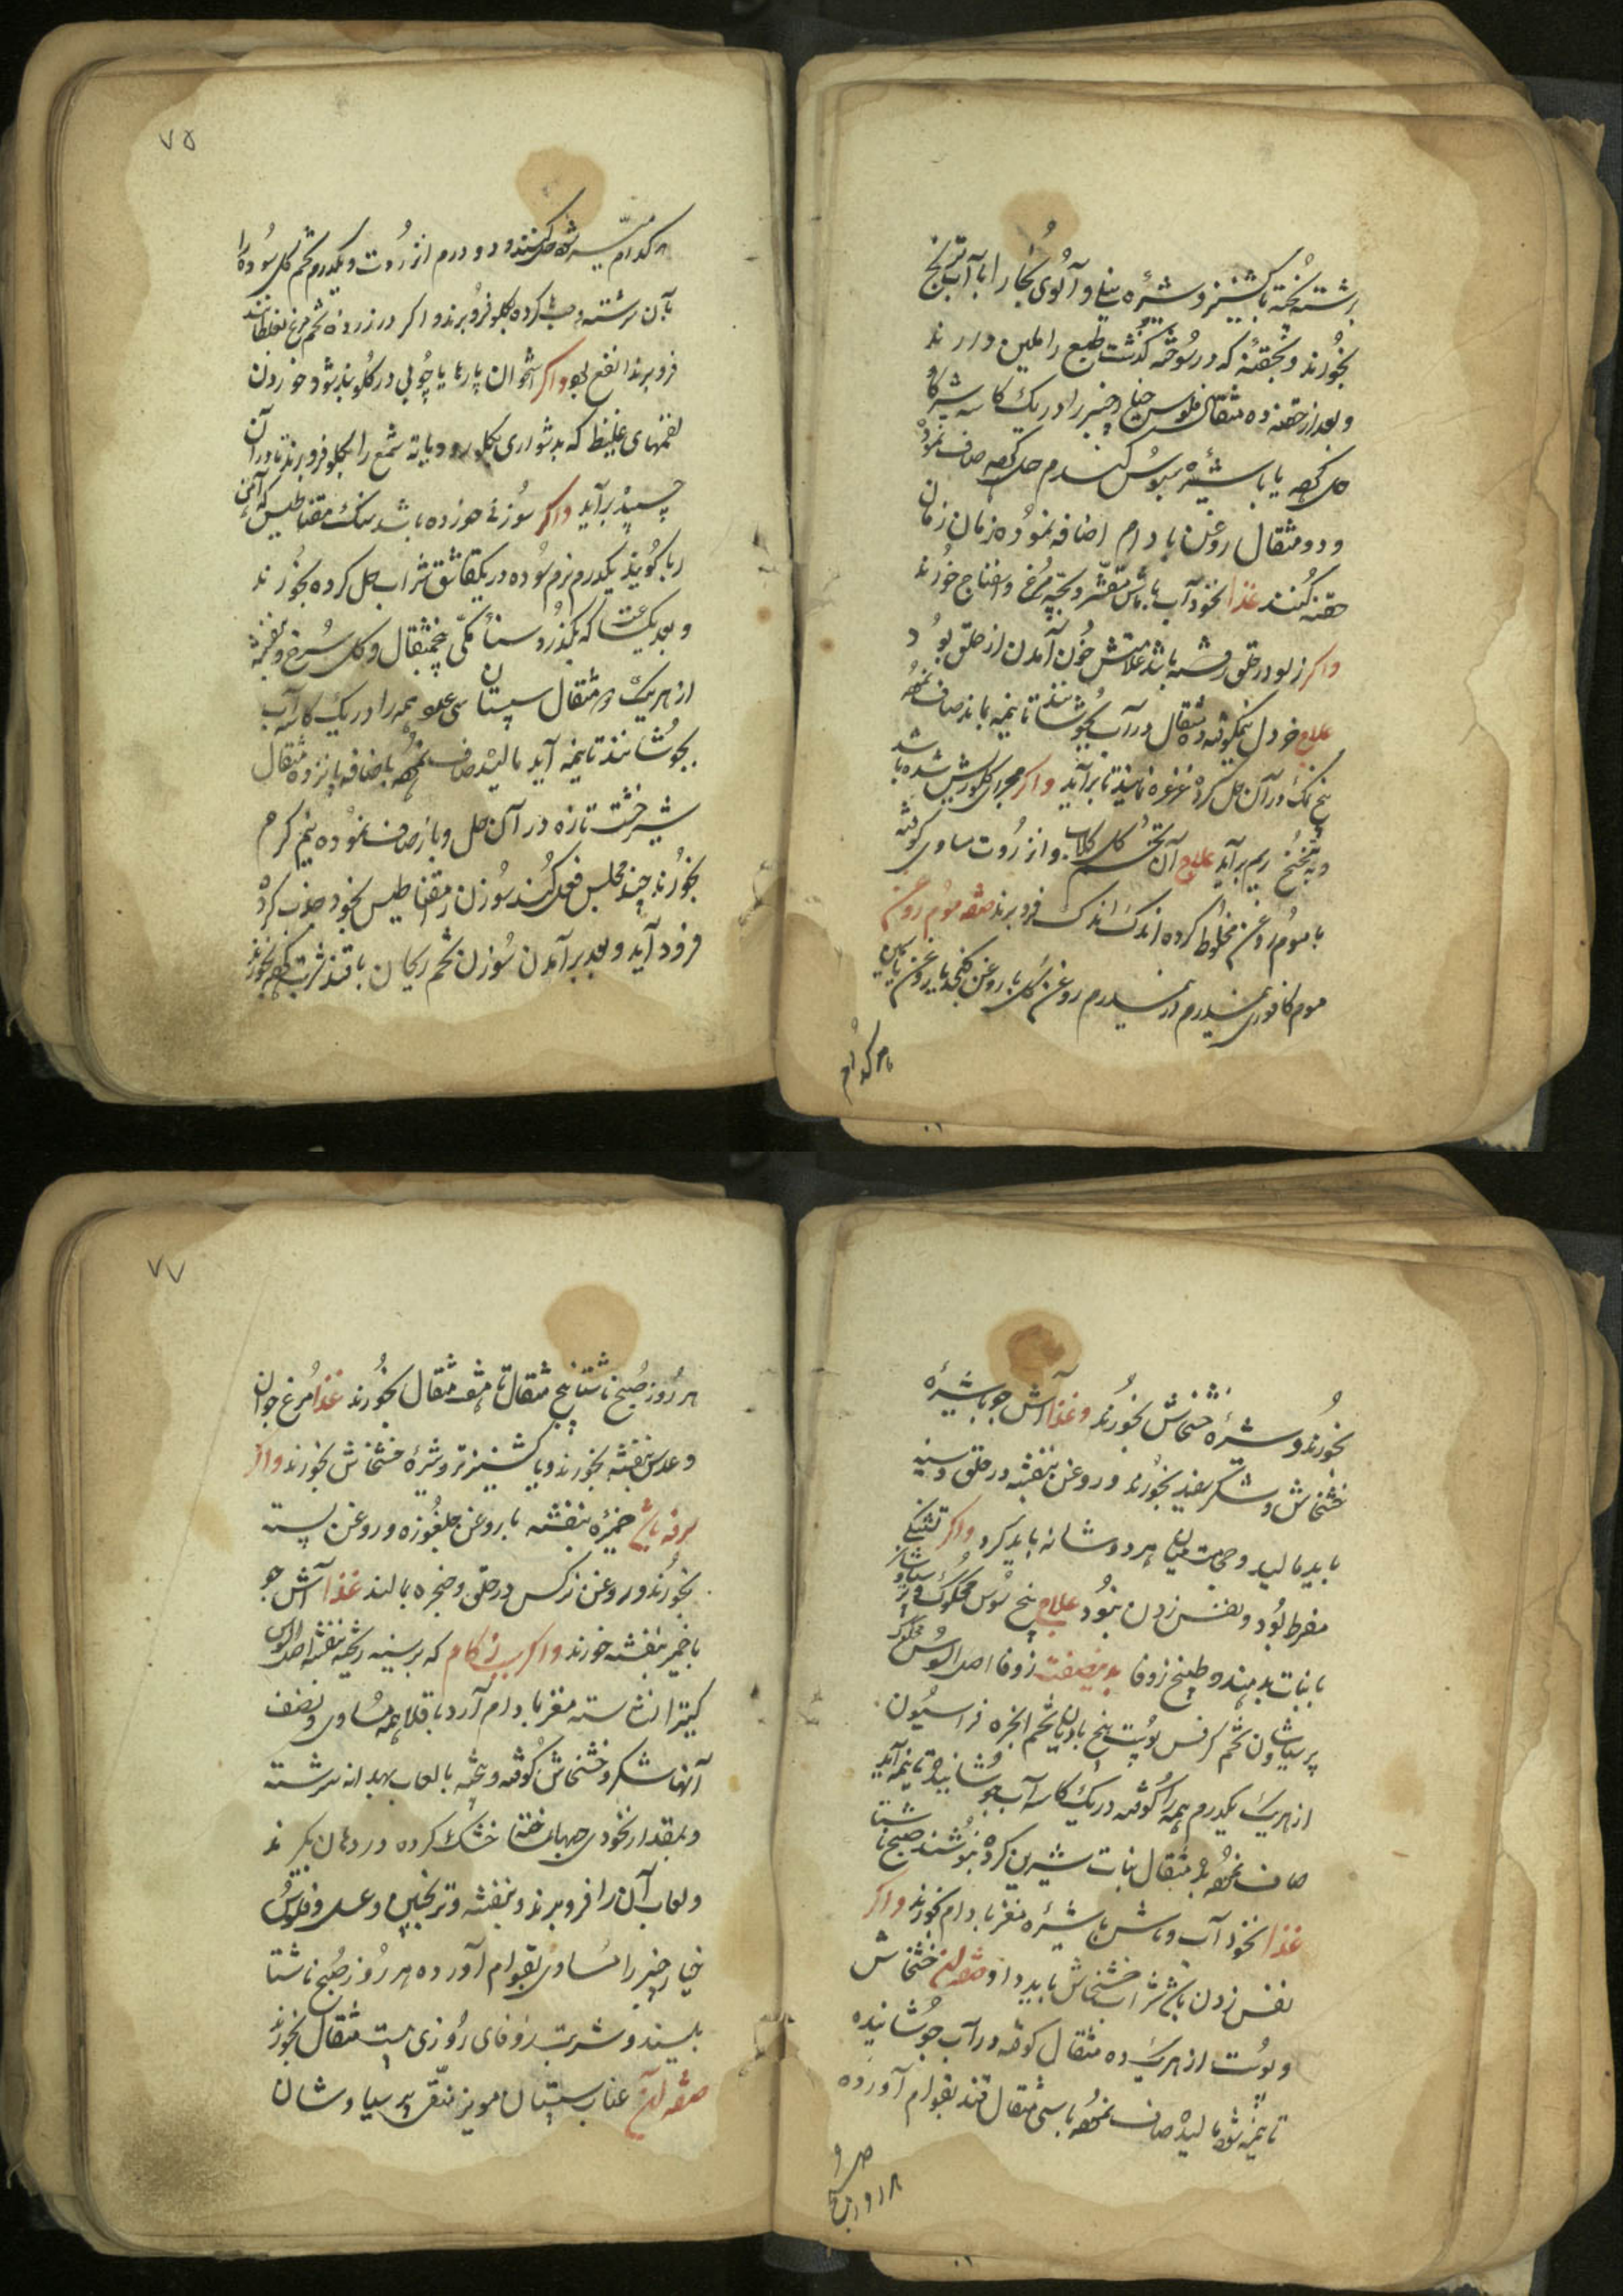 برشته پخته با کشنیز و شیره بنیاد و آلوی بخارا با آب ترنج
بخورند و بحقنه که در سوخته گذشت طبع را ملین دارند
و بعد از حقنه ده مثقال فلوس خیار چنبر را در یک کاسه شیر گاو
حل کرده یا با شیره سبوس گندم حل کرده صاف نموده
و دو مثقال روغن بادام اضافه نموده زمان زمان
حقنه کنند غذا نخودآب با ماش مقشر و بچه مرغ و اسفناج خورند
واکر زلو در حلق رفته باشد علامتش خون آمدن از حلق بود
علاج خردل نیمکوفته ده مثقال در آب بجوشانند تا بنیمه بماند صاف نموده
پنج نمک در آن حل کرده غرغره نمایند تا برآید واکر مجرای گلو ریش شده باشد
و به تنخنح ریم برآید علاج آن تخم گل گلاب و انزروت مساوی کوفته
با موم روغن مخلوط کرده اندک اندک فرو برند صفه موم روغن
موم کافوری نیمدرم در سیدرم روغن گل یا روغن کنجد یا روغن بابین
با هر کدام
۷۵
هر کدام میسر شود حل کنند و دو درم انزروت و یکدرم تخم گل سوده را
بآن سرشته و حب کرده بگلو فرو برند و اگر در زرده تخم مرغ بغلطانند
فرو برند انفع بود واکر استخوان پارها یا چوبی در گلو بند شود خوردن
لقمهای غلیظ که بدشواری بگلو رود یا پته شمع را بگلو فرو برند تا در آن
چسپیده برآید واکر سوزنی خورده باشد سنگ مقناطیس که آهن
ربا گویند یکدرم نرم سوده در یکقاشق شراب حل کرده بخورند
و بعد یکساعت که بگذرد سناء مکی پنجمثقال و گل سرخ و بنفشه
از هر یک ده مثقال سپستان سی عدد همه را در یک کاسه آب
بجوشانند تا بنیمه آید مالیده صاف نموده باضافه پانزده مثقال
شیرخشت تازه در آن حل و باز صاف نموده نیم گرم
بخورند چند مجلس فعل کند سوزن مقناطیس بخود جذب کرده
فرود آید و بعد برآمدن سوزن تخم ریحان با قند شربت کرده بخورند
بخورند و شیره خشخاش بخورند و غذا آش جو با شیره
خشخاش و شکر سفید بخورند و روغن بنفشه در حلق و سینه
باید مالید و حجامت میان هر دو شانه باید کرد واکر تشنگی
مفرط بود و نفس زدن بنمود علاج بیخ سوس محکوک و پرسیاوشان
با نبات بدهند و طبیخ زوفا بدین صفت زوفا اصل السوس محکوک
پرسیاوشان تخم کرفس پوست بیخ بادیان تخم انجره فراسیون
از هر یک یکدرم همه را کوفته در یک کاسه آب جوشانیده تا بنیمه آید
صاف نموده مثقال نبات شیرین کرده بنوشند صبح ناشتا
غذا نخودآب و ماش با شیره مغز بادام بخورند واکر
نفس زدن باشد شراب خشخاش باید داد صفه آن خشخاش
و پوست از هر یک ده مثقال کوفته در آب جوشانیده
تا بنیمه شود مالیده صاف نموده با سی مثقال قند بقوام آورده
۷۷
هر روز صبح ناشتا پنج مثقال تا هفت مثقال بخورند غذا مرغ جوان
و عدس بنفشه بخورند و یا کشنیز تر و شیره خشخاش بخورند واکر
سرفه باشد خمیره بنفشه با روغن چلغوزه و روغن پسته
بخورند و روغن نرگس در حلق و حنجره بمالند غذا آش جو
با خمیر بنفشه خورند واکر سبب زکام که بر سینه ریخته بنفشه اصل السوس
کتیرا نشاسته مغز بادام آرد باقلا همه مساوی و نصف
آنها شکر و خشخاش کوفته و بیخته با لعاب بهدانه سرشته
و بمقدار نخودی حبها ساخته خشک کرده در دهان گیرند
و لعاب آن را فرو برند و بنفشه و ترنجبین و عسل و فلوس
خیارچنبر را مساوی بقوام آورده هر روز صبح ناشتا
بلیسند و شربت زوفای روزی بیست مثقال بخورند
صفه آن عناب سپستان مویز منقی پرسیاوشان